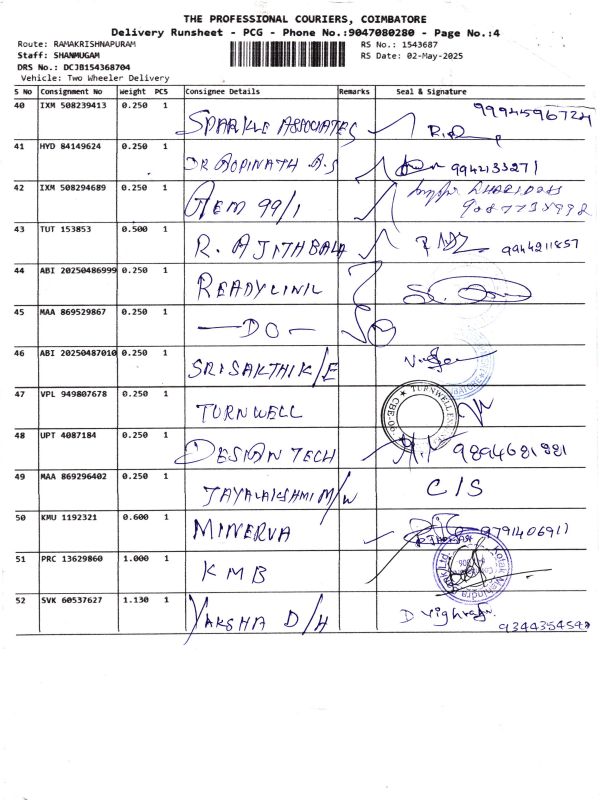 THE PROFESSIONAL COURIERS, COIMBATORE
Delivery Runsheet - PCG - Phone No.:9047080280 - Page No.:4
Route: RAMAKRISHNAPURAM
RS No.: 1543687
Staff: SHANMUGAM
RS Date: 02-May-2025
DRS No.: DCJB154368704
Vehicle: Two Wheeler Delivery
S No Consignment No Weight PCS Consignee Details Remarks Seal & Signature
40 IXM 508239413 0.250 1 SPARKLE ASSOCIATES 9994596724
41 HYD 84149624 0.250 1 DR GOPINATH A.S 9942133271
42 IXM 508294689 0.250 1 GEM 99/1
43 TUT 153853 0.500 1 R. AJITHBALA 9944211857
44 ABI 20250486999 0.250 1 READYCLINIC
45 MAA 869529867 0.250 1 —DO—
46 ABI 20250487010 0.250 1 SRI SAKTHI K/E
47 VPL 949807678 0.250 1 TURNWELL
48 UPT 4087184 0.250 1 DESIGN TECH 9894681881
49 MAA 869296402 0.250 1 JAYALAKSHMI M/W C/S
50 KMU 1192321 0.600 1 MINERVA 979140691
51 PRC 13629860 1.000 1 KMB Kotak Mahindra Bank Ltd
52 SVK 60537627 1.130 1 YAKSHA D/H 9344354598